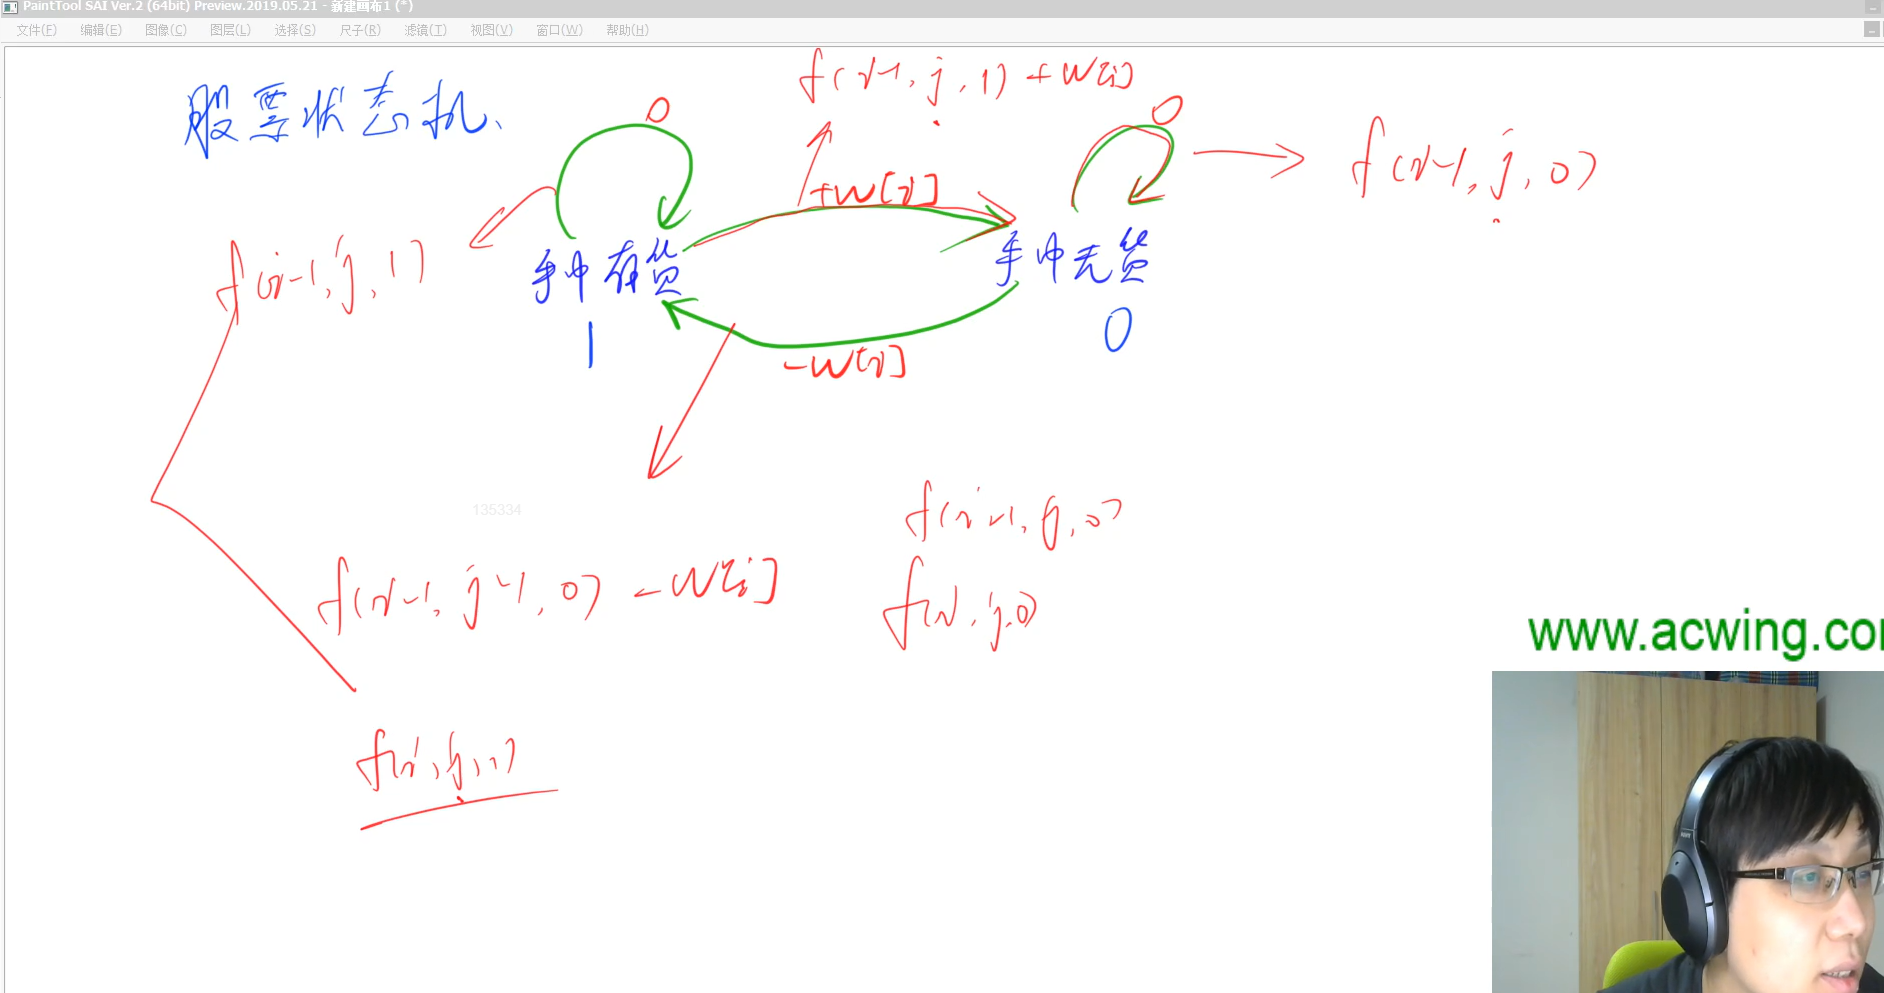 PaintTool SAI Ver.2 (64bit) Preview.2019.05.21 - 新建画布1 (*)
文件(F) 编辑(E) 图像(C) 图层(L) 选择(S) 尺子(R) 滤镜(T) 视图(V) 窗口(W) 帮助(H)
股票状态机、
f(i-1, j, 1) + w[i]
0
0
f(i-1, j, 0)
+w[i]
f(i-1, j, 1)
手中有货
手中无货
1
0
-w[i]
135334
f(i-1, j, 0)
f(i-1, j-1, 0) - w[i]
f(i, j, 0)
www.acwing.co
f(i, j, 1)